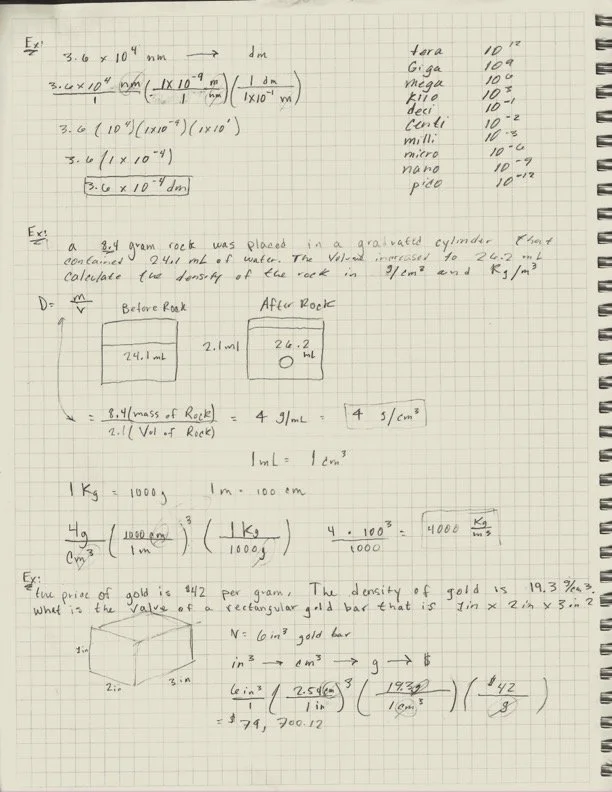 Ex:
3.6 x 10⁴ nm → dm
3.6x10⁴ nm / 1 (1x10⁻⁹ m / 1 nm) (1 dm / 1x10⁻¹ m)
3.6 (10⁴)(1x10⁻⁹)(1x10¹)
3.6 (1x10⁻⁴)
3.6 x 10⁻⁴ dm
tera 10¹²
Giga 10⁹
mega 10⁶
Kilo 10³
deci 10⁻¹
Centi 10⁻²
milli 10⁻³
micro 10⁻⁶
nano 10⁻⁹
pico 10⁻¹²
Ex:
a 8.4 gram rock was placed in a graduated cylinder that
contained 24.1 mL of water. The increased to 26.2 mL
Calculate the density of the rock in g/cm³ and Kg/m³
D= m/v
Before Rock
After Rock
24.1mL
2.1ml
26.2 mL
= 8.4(mass of Rock) / 2.1(Vol of Rock) = 4 g/mL = 4 g/cm³
1mL = 1cm³
1Kg = 1000g 1m = 100 cm
4g / cm³ (1000 cm / 1m)³ (1Kg / 1000g) 4 · 100³ / 1000 = 4000 Kg/m³
Ex:
the price of gold is $42 per gram. The density of gold is 19.3 g/cm³.
What is the value of a rectangular gold bar that is 1in x 2in x 3in ?
1in
2in
3in
V= 6in³ gold bar
in³ → cm³ → g → $
6in³ / 1 (2.54cm / 1in)³ (19.3g / 1cm³) ($42 / g)
= $79,700.12